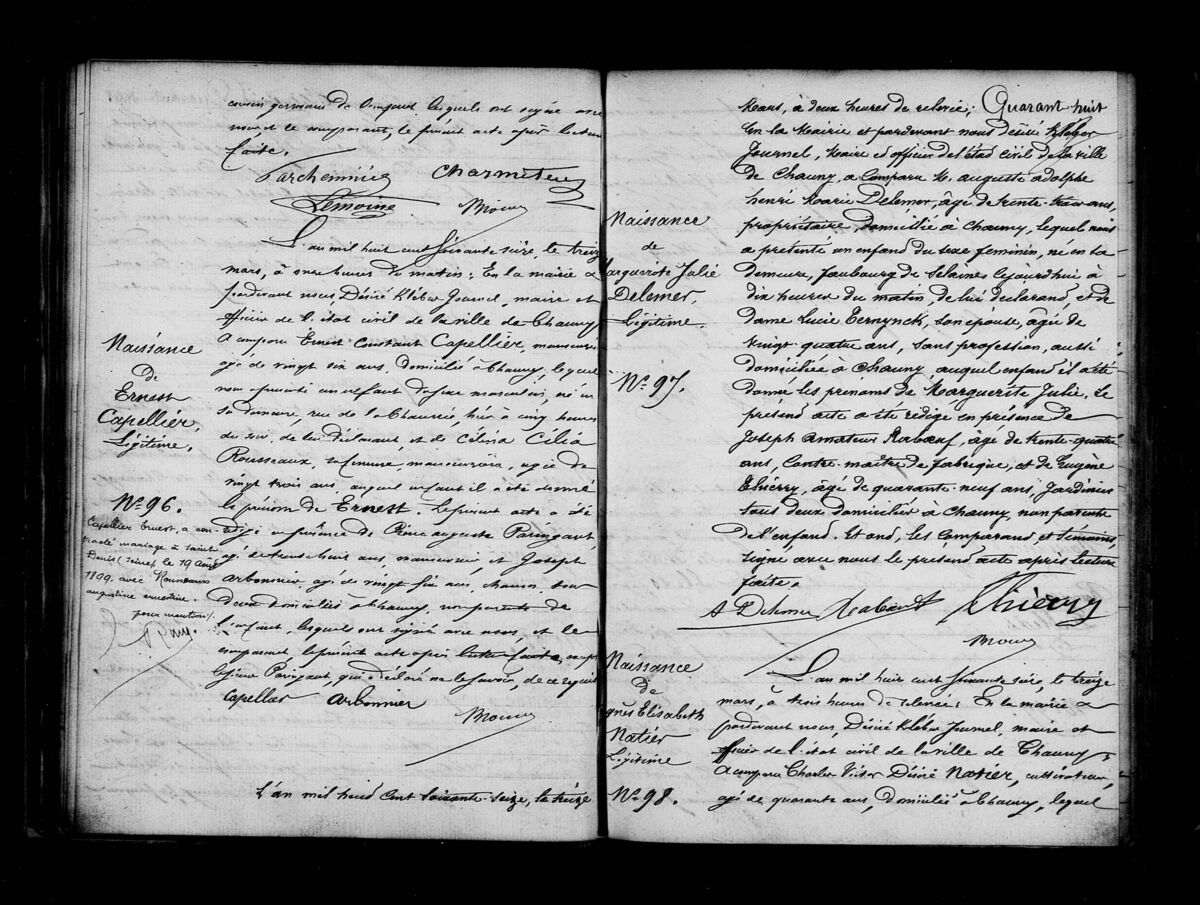 cousin germans de l'enfant lesquels ont signé avec
nous, et le comparant, le présent acte après lecture
faite.
Charmet
Lemoine
L'an mil huit cent soixante seize, le treize
mars, à onze heures du matin; En la mairie &
pardevant nous Désiré Kléber Journel, maire et
officier de l'état civil de la ville de Chauny
A comparu Ernest Constant Capellier, manouvrier
agé de vingt six ans, domicilié à Chauny, lequel
nous a présenté un enfant du sexe masculin, né en
sa demeure, rue de la Chaussée, hier à cinq heures
du soir, de lui déclarant et de Célina Célia
Rousseaux, sa femme, manouvrière, agée de
vingt trois ans, auquel enfant il a été donné
le prénom de Ernest. Le présent acte a été
rédigé en présence de Pierre auguste Paringaut,
agé de trente huit ans, manouvrier, et Joseph
Arbonnier, agé de vingt six ans, tous
deux domiciliés à Chauny, non parents de
l'enfant, lesquels ont signé avec nous, et le
comparant le présent acte après lecture faite, excepté
le sieur Paringaut, qui a déclaré ne le savoir, de ce requis
Capellier Arbonnier
Naissance
de
Ernest
Capellier,
Légitime,
No. 96.
Capellier Ernest, a con-
tracté mariage à Saint
Denis (Seine) le 19 Août
1899, avec Rousseaux
augustine ernestine.
pour mention.
L'an mil huid Cent Soixante-Seize, le treize
Mars, à deux heures de relevée; Quarant huit
En la Mairie et pardevant nous désiré Kléber
Journel, Maire et officier de l'état civil de la ville
de Chauny, a Comparu M. auguste adolphe
henri Marie Delemer, âgé de trente-trois ans,
propriétaire, domicilié à Chauny, lequel nous
a présenté un enfand du sexe feminin, né en la
demeure, faubourg de Selaines cejourdhui à
dix heures du matin, de lui déclarand, et de
dame Lucie Ternynck, son épouse, âgée de
vingt quatre ans, sans profession, aussi
domiciliée à Chauny, auquel enfand il a été
donné les prénoms de Marguerite Julie. Le
présend acte a été rédigé en présence de
Joseph amateur Rabœuf, âgé de trente-quatre
ans, Contre-maître de fabrique, et de Eugène
Thiérry, âgé de quarante-neuf ans, Jardinier
tous deux domicilier à Chauny, non parents
de l'enfand. Et ond, les Comparand et témoins,
signé avec nous le présend acte après lecture
faite.
A Delemer Rabœuf Thièrry
Naissance
de
Marguerite Julie
Delemer,
Légitime,
No. 97.
L'an mil huit cent soixante seize, le treize
mars, à trois heures de relevée; En la mairie &
pardevant nous, Désiré Kléber Journel, maire et
officier de l'état civil de la ville de Chauny
A comparu Charles Victor Désiré Natier, cultivateur,
agé de quarante ans, domicilié à Chauny, lequel
Naissance
de
Agnès Elisabeth
Natier
Légitime
No. 98.